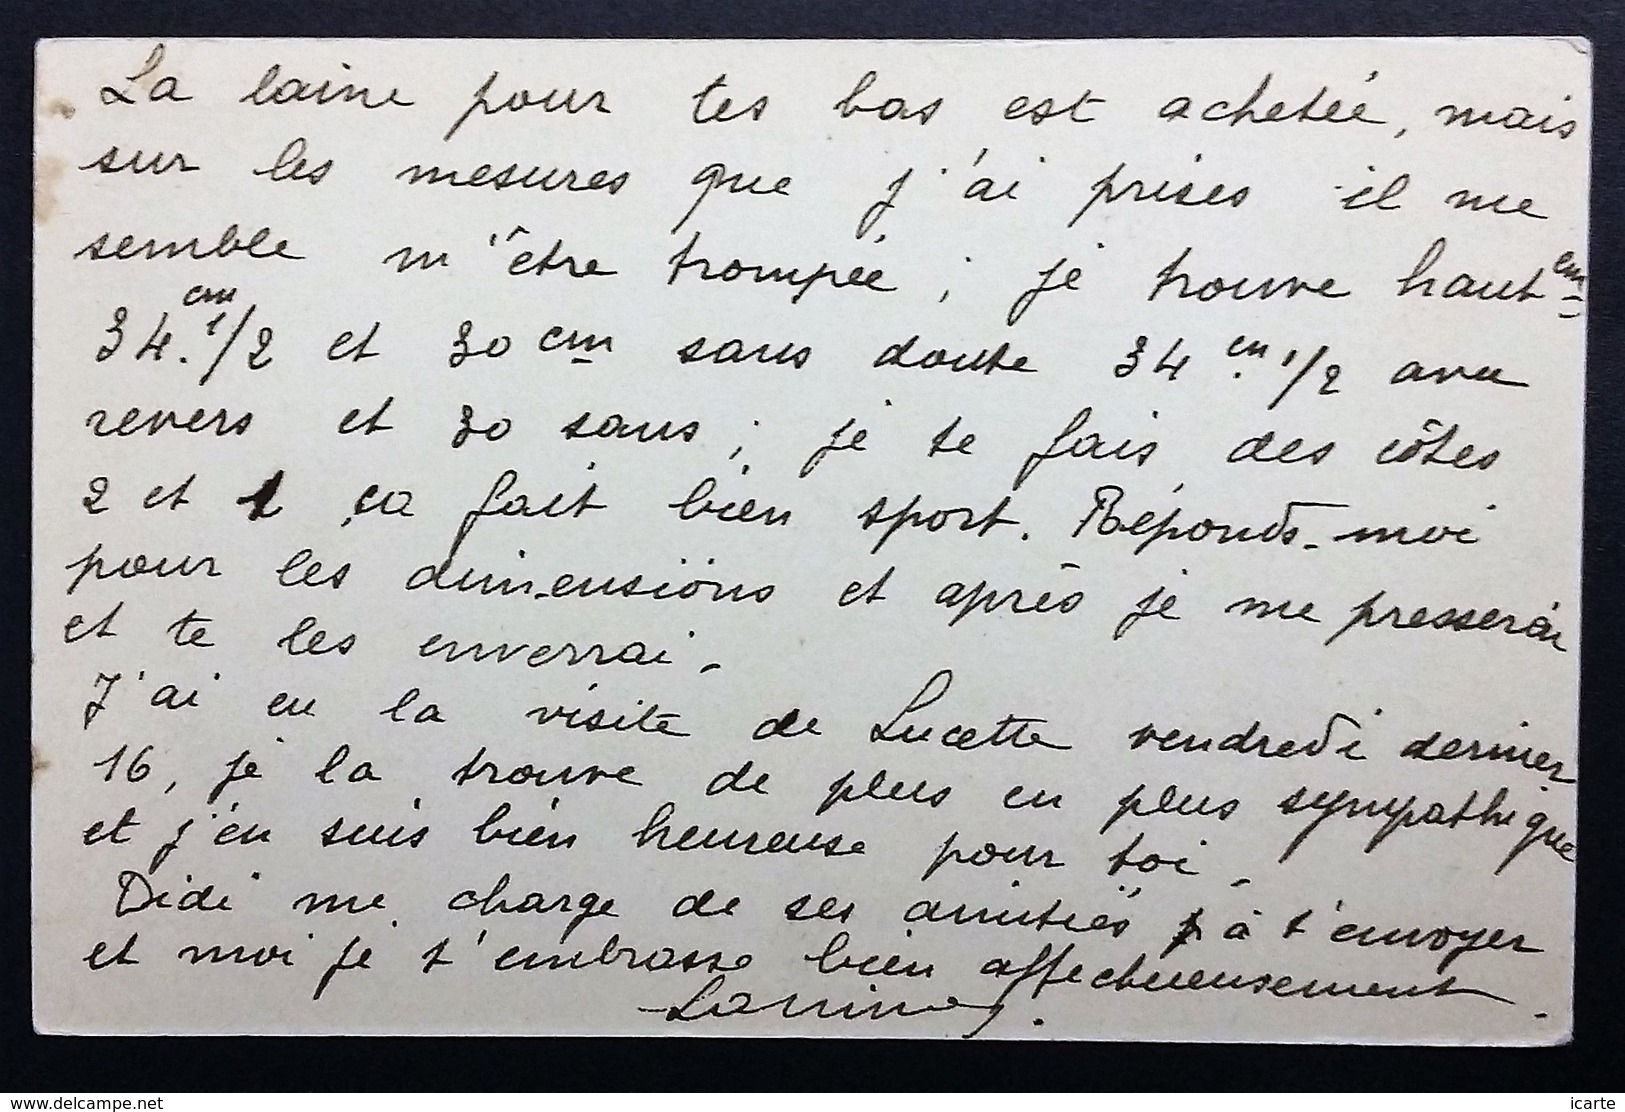 La laine pour tes bas est achetée, mais
sur les mesures que j'ai prises il me
semble m'être trompée ; je trouve haut cm
34.cm 1/2 et 30 cm sans doute 34 cm. 1/2 avec
revers et 30 sans ; je te fais des côtes
2 et 1 ça fait bien sport. Réponds-moi
pour les dimensions et après je me presserai
et te les enverrai.
J'ai eu la visite de Lucette vendredi dernier
16, je la trouve de plus en plus sympathique
et j'en suis bien heureuse pour toi.
Didi me charge de ses amitiés à t'envoyer
et moi je t'embrasse bien affectueusement.
www.delcampe.net
icarte